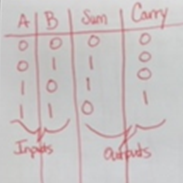 A B Sum Carry
0 0 0 0
0 1 1 0
1 0 1 0
1 1 0 1
Inputs Outputs